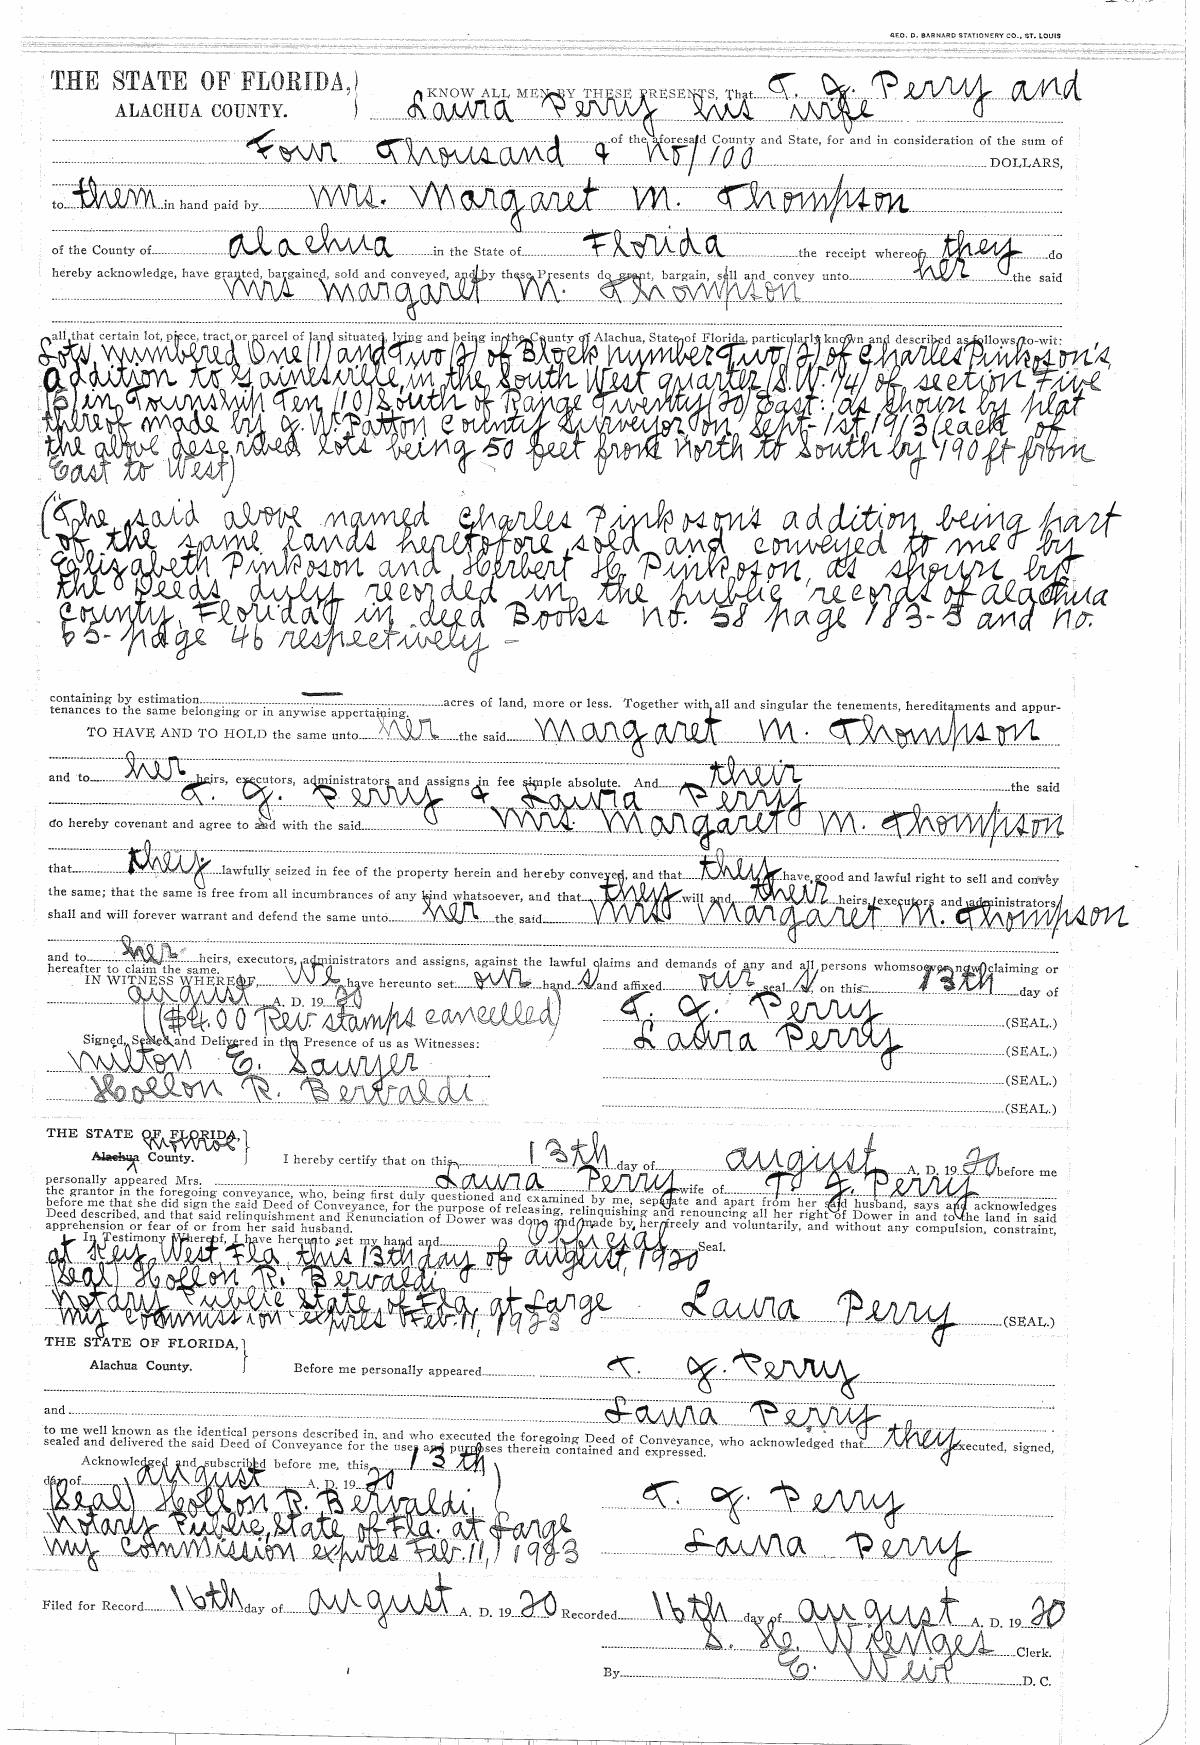 GEO. D. BARNARD STATIONERY CO., ST. LOUIS
THE STATE OF FLORIDA,
ALACHUA COUNTY.
KNOW ALL MEN BY THESE PRESENTS, That T. J. Perry and
Laura Perry his wife
of the aforesaid County and State, for and in consideration of the sum of
Four Thousand & no/100 DOLLARS,
to them in hand paid by Mrs. Margaret M. Thompson
of the County of Alachua in the State of Florida the receipt whereof they do
hereby acknowledge, have granted, bargained, sold and conveyed, and by these Presents do grant, bargain, sell and convey unto her the said
Mrs Margaret M. Thompson
all that certain lot, piece, tract or parcel of land situated, lying and being in the County of Alachua, State of Florida, particularly known and described as follows, to-wit:
Lots numbered One (1) and Two (2) of Block number Two (2) of Charles Pinkoson's
addition to Gainesville, in the South West quarter (S.W. 1/4) of section Five
(5) in Township Ten (10) South of Range Twenty (20) East: as shown by plat
thereof made by J. W. Patton County Surveyor on Sept- 1st, 1913 (each of
the above described lots being 50 feet from North to South by 190 ft from
East to West)
(The said above named Charles Pinkoson's addition being part
of the same lands heretofore sold and conveyed to me by
Elizabeth Pinkoson and Herbert H. Pinkoson, as shown by
the Deeds duly recorded in the public records of Alachua
County, Florida, in deed Books no. 58 page 183-5 and no.
65- page 46 respectively -
containing by estimation acres of land, more or less. Together with all and singular the tenements, hereditaments and appur-
tenances to the same belonging or in anywise appertaining.
TO HAVE AND TO HOLD the same unto her the said Margaret M. Thompson
and to her heirs, executors, administrators and assigns in fee simple absolute. And their the said
T. J. Perry & Laura Perry
do hereby covenant and agree to and with the said Mrs. Margaret M. Thompson
that they lawfully seized in fee of the property herein and hereby conveyed, and that they have good and lawful right to sell and convey
the same; that the same is free from all incumbrances of any kind whatsoever, and that they will and their heirs, executors and administrators
shall and will forever warrant and defend the same unto her the said Mrs Margaret M. Thompson
and to her heirs, executors, administrators and assigns, against the lawful claims and demands of any and all persons whomsoever now claiming or
hereafter to claim the same.
IN WITNESS WHEREOF, We have hereunto set our hand s and affixed our seal s on this 13th day of
August A. D. 1920
($4.00 Rev. stamps cancelled)
T. J. Perry (SEAL.)
Signed, Sealed and Delivered in the Presence of us as Witnesses:
Laura Perry (SEAL.)
Milton E. Sawyer
(SEAL.)
Hollon R. Bervaldi
(SEAL.)
THE STATE OF FLORIDA,
Monroe
Alachua County.
I hereby certify that on this 13th day of August A. D. 1920 before me
personally appeared Mrs. Laura Perry wife of T. J. Perry
the grantor in the foregoing conveyance, who, being first duly questioned and examined by me, separate and apart from her said husband, says and acknowledges
before me that she did sign the said Deed of Conveyance, for the purpose of releasing, relinquishing and renouncing all her right of Dower in and to the land in said
Deed described, and that said relinquishment and Renunciation of Dower was done and made by her freely and voluntarily, and without any compulsion, constraint,
apprehension or fear of or from her said husband.
In Testimony Whereof, I have hereunto set my hand and Official Seal.
at Key West, Fla, this 13th day of August, 1920
(Seal) Hollon R. Bervaldi
Notary Public State of Fla, at Large
My commission expires Feb. 11, 1923
Laura Perry (SEAL.)
THE STATE OF FLORIDA,
Alachua County.
Before me personally appeared T. J. Perry
and Laura Perry
to me well known as the identical persons described in, and who executed the foregoing Deed of Conveyance, who acknowledged that they executed, signed,
sealed and delivered the said Deed of Conveyance for the uses and purposes therein contained and expressed.
Acknowledged and subscribed before me, this 13th
day of August A. D. 1920
(Seal) Hollon R. Bervaldi,
Notary Public, State of Fla. at Large
My commission expires Feb. 11, 1923
T. J. Perry
Laura Perry
Filed for Record 16th day of August A. D. 1920 Recorded 16th day of August A. D. 1920
S. H. Wienges Clerk.
By E. Weir D. C.